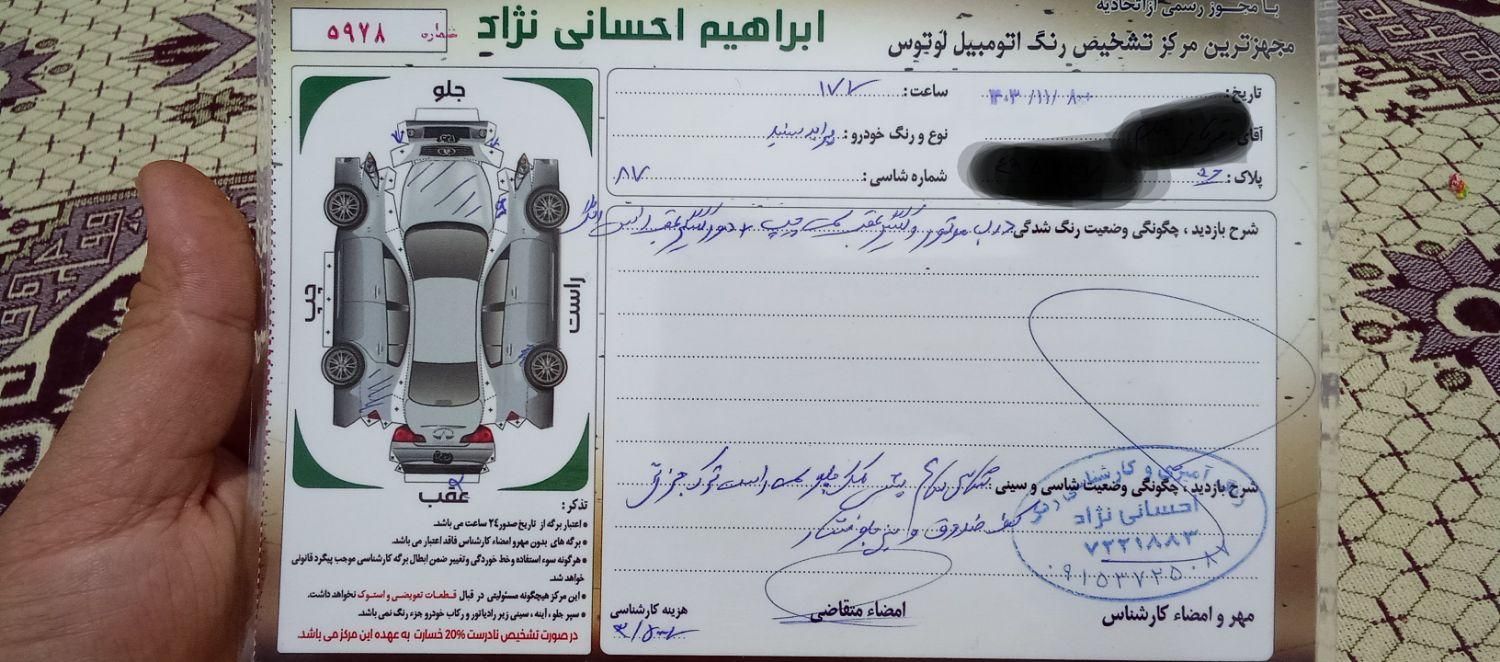 با مجوز رسمی از اتحادیه
ابراهیم احسانی نژاد
شماره ۵۹۷۸
مجهزترین مرکز تشخیص رنگ اتومبیل لوتوس
تاریخ: ۱۴۰۳/۱۱/۰۸
ساعت: ۱۷
آقای
نوع و رنگ خودرو: پراید سفید
پلاک:
شماره شاسی: ۸۷
شرح بازدید ، چگونگی وضعیت رنگ شدگی: درب موتور و گلگیر عقب سمت چپ
شرح بازدید ، چگونگی وضعیت شاسی و سینی:
کف صندوق و سینی جلو
احسانی نژاد
۷۲۲۱۸۸۳
مهر و امضاء کارشناس
امضاء متقاضی
هزینه کارشناسی
جلو
چپ
راست
عقب
تذکر:
● اعتبار برگه از تاریخ صدور ۲۴ ساعت می باشد.
● برگه های بدون مهر و امضاء کارشناس فاقد اعتبار می باشد.
● هرگونه سوء استفاده و خط خوردگی و تغییر ضمن ابطال برگه کارشناسی موجب پیگرد قانونی
خواهد شد.
● این مرکز هیچگونه مسئولیتی در قبال قطعات تعویضی و استوک نخواهد داشت.
● سپر جلو ، آینه ، سینی زیر رادیاتور و رکاب خودرو جزء رنگ نمی باشد.
در صورت تشخیص نادرست 20% خسارت به عهده این مرکز می باشد.